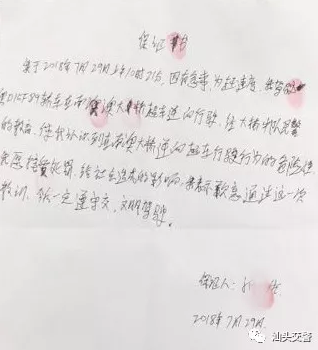 保证书
某于2018年7月29日上午10时21分,因有急事为赶速度,我驾驶
粤D1CF89轿车在南澳大桥超车道逆向行驶,经大桥中队民警
的教育,使我认识到在南澳大桥逆向超车行驶行为的危险性,
我愿接受处罚,给社会造成的影响,表示歉意,通过这一次
教训,我一定遵守交,文明驾驶。
保证人:
2018年7月29日
汕头交警